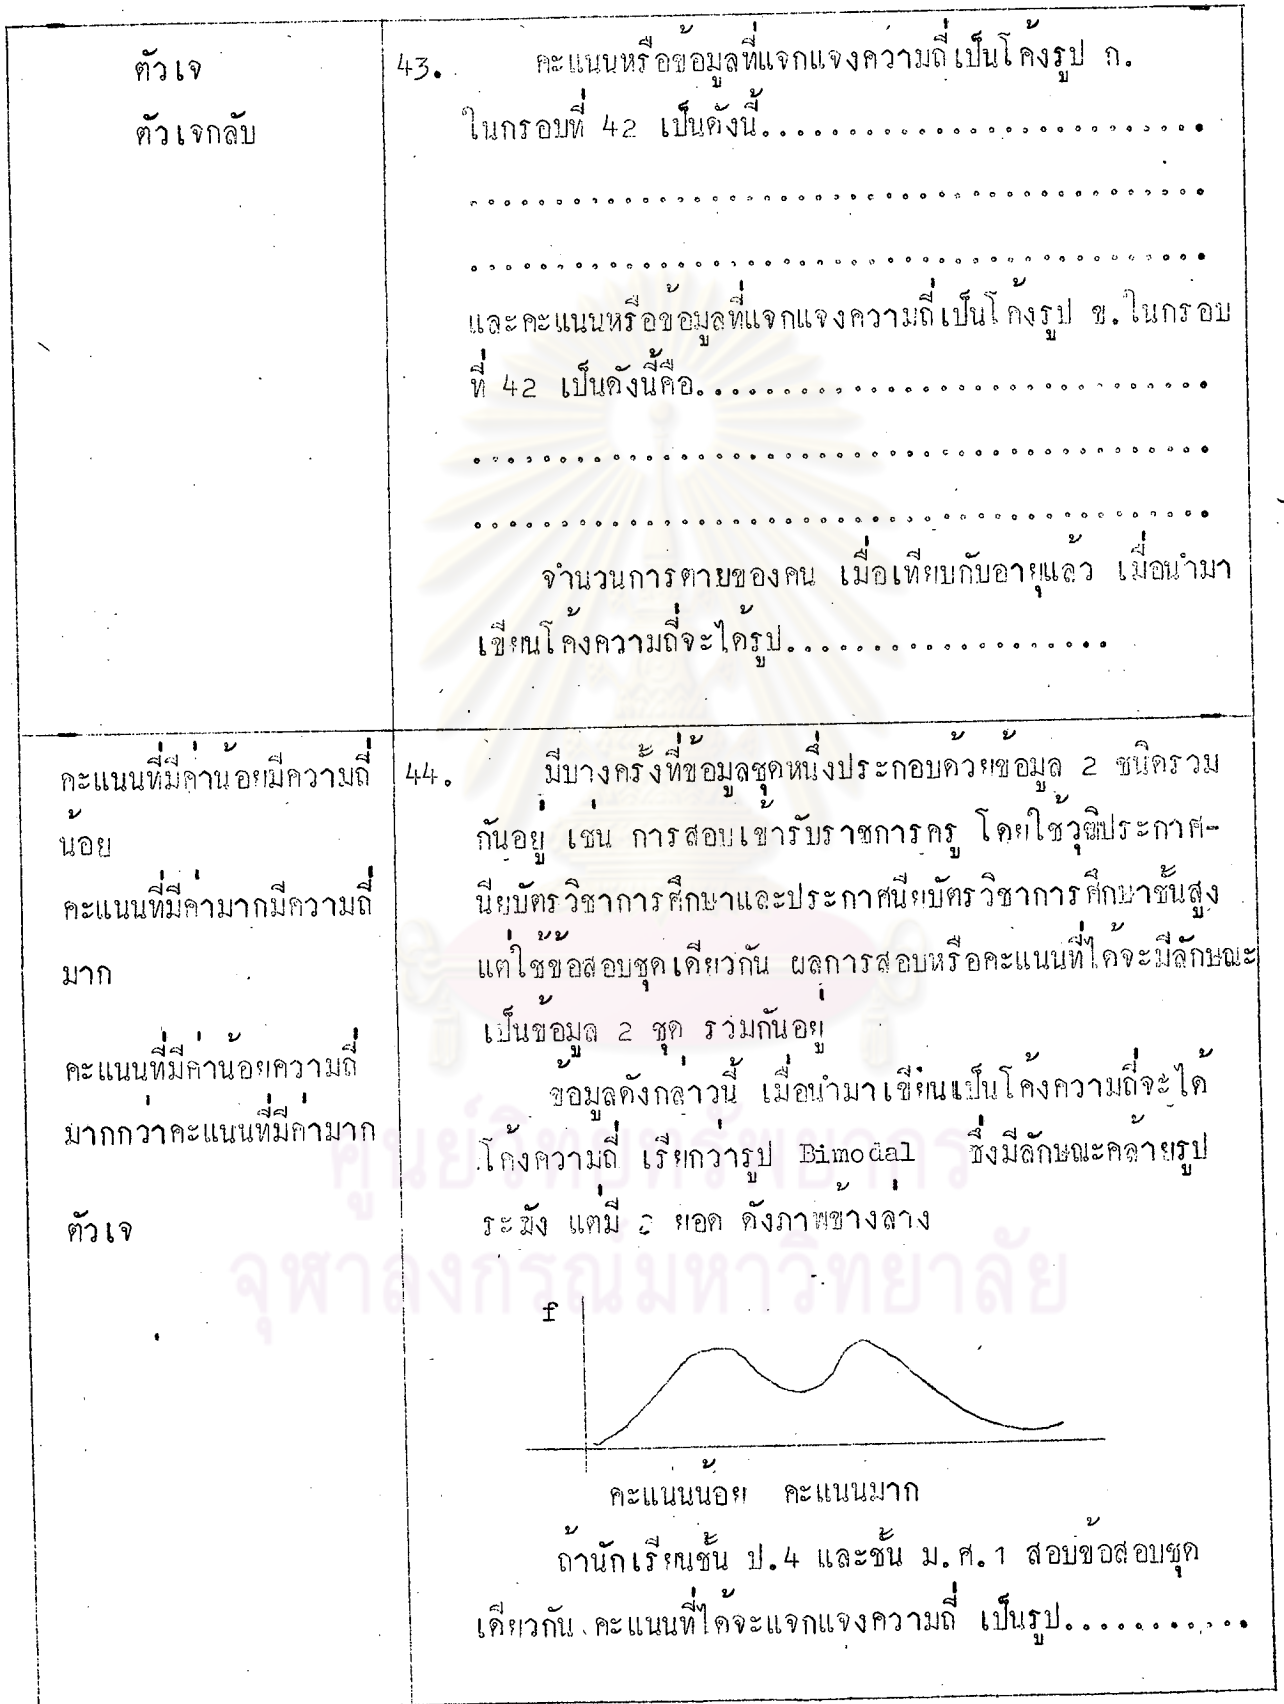 ตัวเจ
ตัวเจกลับ
43. คะแนนหรือข้อมูลที่แจกแจงความถี่เป็นโค้งรูป ก.
ในกรอบที่ 42 เป็นดังนี้..............................
..................................................
..................................................
และคะแนนหรือข้อมูลที่แจกแจงความถี่เป็นโค้งรูป ข.ในกรอบ
ที่ 42 เป็นดังนี้คือ...................................
..................................................
..................................................
จำนวนการตายของคน เมื่อเทียบกับอายุแล้ว เมื่อนำมา
เขียนโค้งความถี่จะได้รูป......................
คะแนนที่มีค่าน้อยมีความถี่
น้อย
คะแนนที่มีค่ามากมีความถี่
มาก
คะแนนที่มีค่าน้อยความถี่
มากกว่าคะแนนที่มีค่ามาก
ตัวเจ
44. มีบางครั้งที่ข้อมูลชุดหนึ่งประกอบด้วยข้อมูล 2 ชนิดรวม
กันอยู่ เช่น การสอบเข้ารับราชการครู โดยใช้วุฒิประกาศ-
นียบัตรวิชาการศึกษาและประกาศนียบัตรวิชาการศึกษาชั้นสูง
แต่ใช้ข้อสอบชุดเดียวกัน ผลการสอบหรือคะแนนที่ได้จะมีลักษณะ
เป็นข้อมูล 2 ชุด รวมกันอยู่
ข้อมูลดังกล่าวนี้ เมื่อนำมาเขียนเป็นโค้งความถี่จะได้
โค้งความถี่ เรียกว่ารูป Bimodal ซึ่งมีลักษณะคล้ายรูป
ระฆัง แต่มี 2 ยอด ดังภาพข้างล่าง
f
คะแนนน้อย คะแนนมาก
ถ้านักเรียนชั้น ป.4 และชั้น ม.ศ.1 สอบข้อสอบชุด
เดียวกัน คะแนนที่ได้จะแจกแจงความถี่ เป็นรูป............
ศูนย์วิทยทรัพยากร
จุฬาลงกรณ์มหาวิทยาลัย